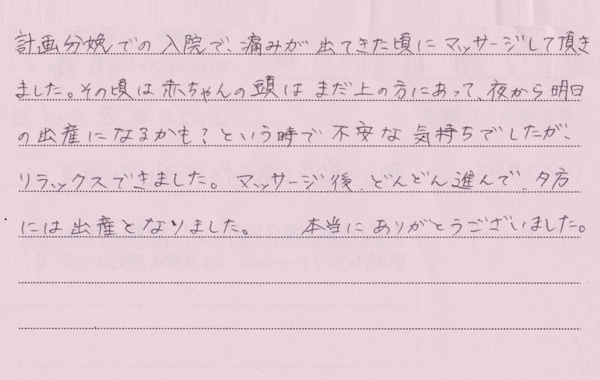 計画分娩での入院で、痛みが出てきた頃にマッサージして頂き
ました。その頃は赤ちゃんの頭はまだ上の方にあって、夜から明日
の出産になるかも?という時で不安な気持ちでしたが、
リラックスできました。マッサージ後、どんどん進んで、夕方
には出産となりました。 本当にありがとうございました。